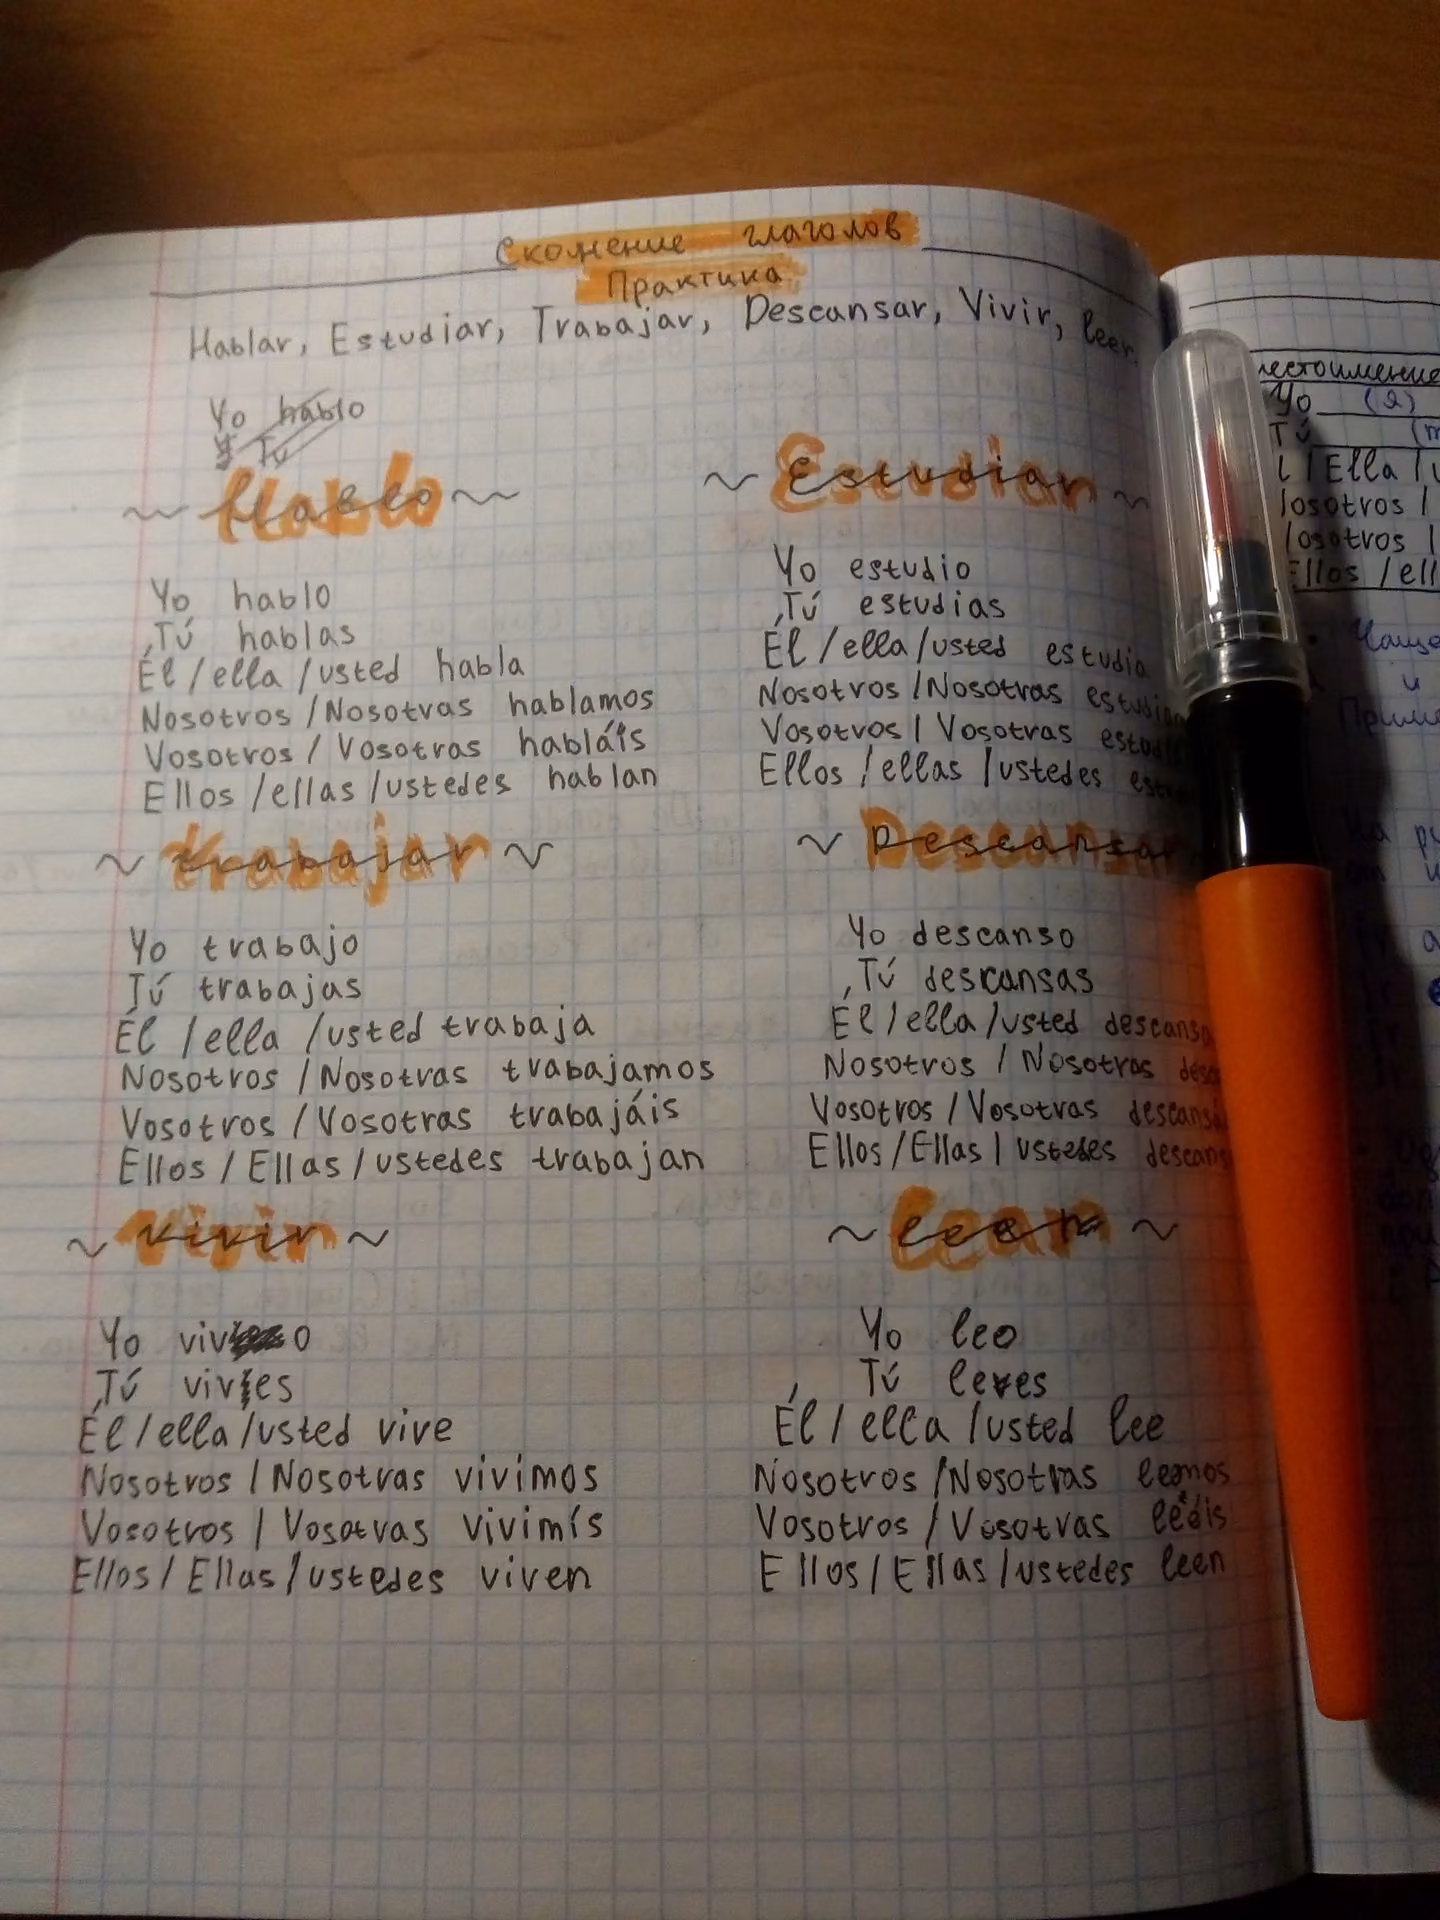 Склонение глаголов
Практика
Hablar, Estudiar, Trabajar, Descansar, Vivir, leer.
Yo hablo
Tú
~ Hablo ~
Yo hablo
Tú hablas
Él / ella / usted habla
Nosotros / Nosotras hablamos
Vosotros / Vosotras habláis
Ellos / ellas / ustedes hablan
~ Estudiar ~
Yo estudio
Tú estudias
Él / ella / usted estudia
Nosotros / Nosotras
Vosotros / Vosotras
Ellos / ellas / ustedes
~ trabajar ~
Yo trabajo
Tú trabajas
Él / ella / usted trabaja
Nosotros / Nosotras trabajamos
Vosotros / Vosotras trabajáis
Ellos / Ellas / ustedes trabajan
~ Descansar
Yo descanso
Tú descansas
Él / ella / usted
Nosotros / Nosotras
Vosotros / Vosotras
Ellos / Ellas / ustedes
~ vivir ~
Yo vivo
Tú vives
Él / ella / usted vive
Nosotros / Nosotras vivimos
Vosotros / Vosotras vivimís
Ellos / Ellas / ustedes viven
~ leer ~
Yo leo
Tú lees
Él / ella / usted lee
Nosotros / Nosotras leemos
Vosotros / Vosotras leéis
Ellos / Ellas / ustedes leen
Yo (я)
Tú
/ Ella /